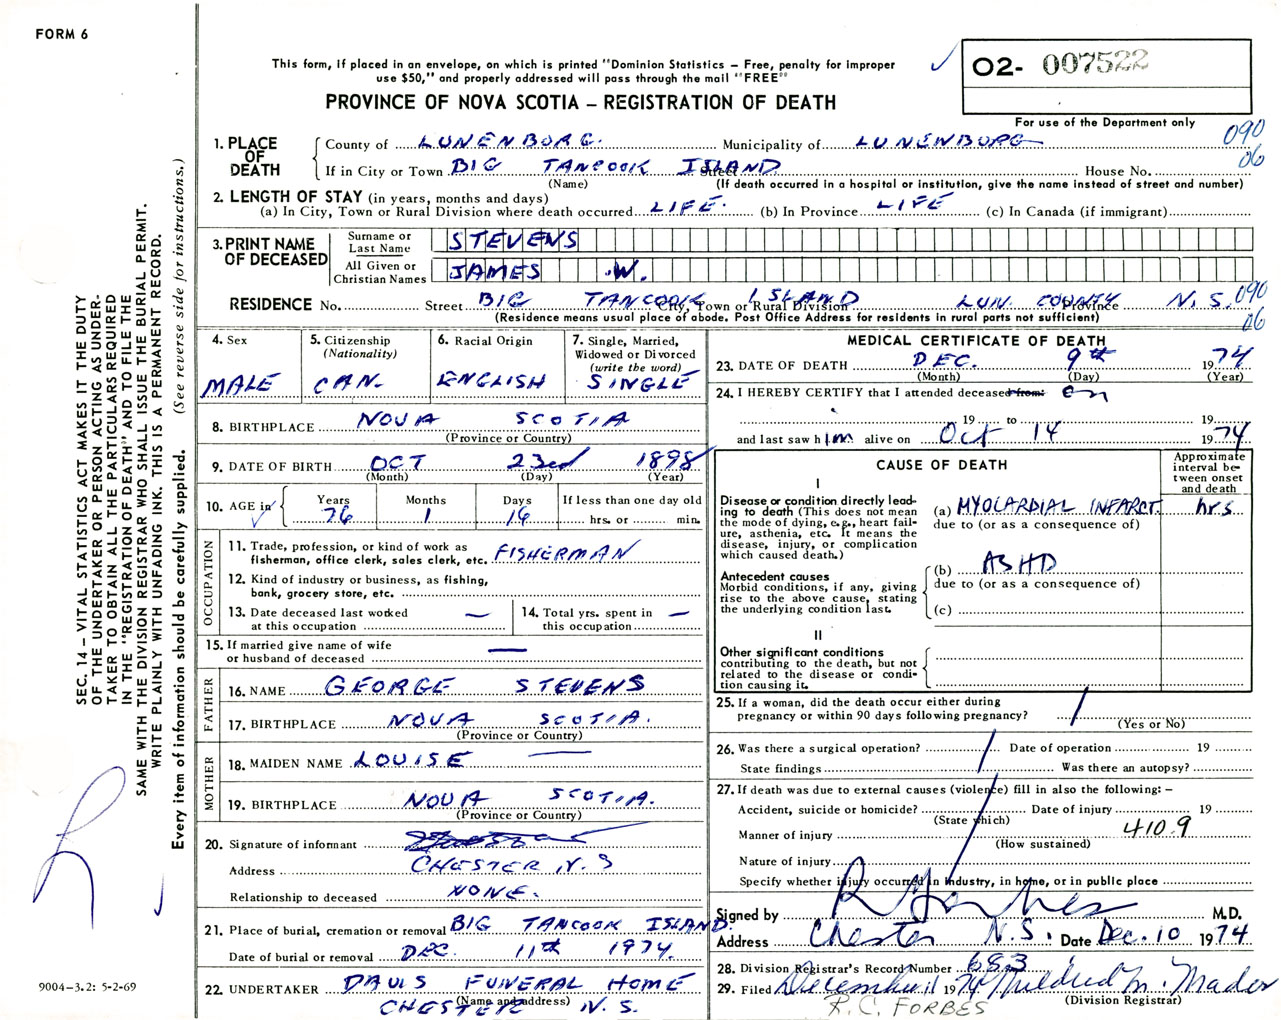 FORM 6
This form, if placed in an envelope, on which is printed "Dominion Statistics – Free, penalty for improper
use $50," and properly addressed will pass through the mail "FREE"
02- 007522
PROVINCE OF NOVA SCOTIA – REGISTRATION OF DEATH
For use of the Department only
SEC. 14 – VITAL STATISTICS ACT MAKES IT THE DUTY
OF THE UNDERTAKER OR PERSON ACTING AS UNDER-
TAKER TO OBTAIN ALL THE PARTICULARS REQUIRED
IN THE "REGISTRATION OF DEATH" AND TO FILE THE
SAME WITH THE DIVISION REGISTRAR WHO SHALL ISSUE THE BURIAL PERMIT.
WRITE PLAINLY WITH UNFADING INK. THIS IS A PERMANENT RECORD.
Every item of information should be carefully supplied. (See reverse side for instructions.)
1. PLACE OF DEATH
County of LUNENBORG. Municipality of LUNENBORG 090
If in City or Town BIG TANCOOK ISLAND Street House No. 06
(Name) (If death occurred in a hospital or institution, give the name instead of street and number)
2. LENGTH OF STAY (in years, months and days)
(a) In City, Town or Rural Division where death occurred LIFE. (b) In Province LIFE (c) In Canada (if immigrant)
3. PRINT NAME OF DECEASED
Surname or Last Name STEVENS
All Given or Christian Names JAMES W.
RESIDENCE No. Street BIG TANCOOK ISLAND City, Town or Rural Division LUN. COUNTY Province N.S. 090
(Residence means usual place of abode. Post Office Address for residents in rural parts not sufficient) 06
4. Sex MALE
5. Citizenship (Nationality) CAN.
6. Racial Origin ENGLISH
7. Single, Married, Widowed or Divorced (write the word) SINGLE
8. BIRTHPLACE NOVA SCOTIA
(Province or Country)
9. DATE OF BIRTH OCT 23rd 1898
(Month) (Day) (Year)
10. AGE in Years 76 Months 1 Days 16 If less than one day old hrs. or min.
OCCUPATION
11. Trade, profession, or kind of work as
fisherman, office clerk, sales clerk, etc. FISHERMAN
12. Kind of industry or business, as fishing,
bank, grocery store, etc.
13. Date deceased last worked at this occupation —
14. Total yrs. spent in this occupation —
15. If married give name of wife
or husband of deceased —
FATHER
16. NAME GEORGE STEVENS
17. BIRTHPLACE NOVA SCOTIA.
(Province or Country)
MOTHER
18. MAIDEN NAME LOUISE —
19. BIRTHPLACE NOVA SCOTIA.
(Province or Country)
20. Signature of informant
Address CHESTER N.S
Relationship to deceased NONE.
21. Place of burial, cremation or removal BIG TANCOOK ISLAND.
Date of burial or removal DEC. 11th 1974
22. UNDERTAKER DAVIS FUNERAL HOME
(Name and address)
CHESTER N.S.
9004-3.2: 5-2-69
MEDICAL CERTIFICATE OF DEATH
23. DATE OF DEATH DEC. 9th 1974
(Month) (Day) (Year)
24. I HEREBY CERTIFY that I attended deceased from: on
19 to 19
and last saw him alive on Oct 14 1974
CAUSE OF DEATH
Approximate interval between onset and death
I
Disease or condition directly lead-
ing to death (This does not
mean the mode of dying, e.g., heart fail-
ure, asthenia, etc. It means the
disease, injury, or complication
which caused death.)
(a) MYOCARDIAL INFARCT. hrs
due to (or as a consequence of)
Antecedent causes
Morbid conditions, if any, giving
rise to the above cause, stating
the underlying condition last.
(b) ASHD
due to (or as a consequence of)
(c)
II
Other significant conditions
contributing to the death, but not
related to the disease or condi-
tion causing it.
25. If a woman, did the death occur either during
pregnancy or within 90 days following pregnancy?
(Yes or No)
26. Was there a surgical operation? Date of operation 19
State findings Was there an autopsy?
27. If death was due to external causes (violence) fill in also the following: –
Accident, suicide or homicide? Date of injury 19
(State which)
Manner of injury 410.9
(How sustained)
Nature of injury
Specify whether injury occurred in industry, in home, or in public place
Signed by R Forbes M.D.
Address Chester N.S. Date Dec. 10 1974
28. Division Registrar's Record Number 683
29. Filed December 11 1974 Mildred M. Mader
(Division Registrar)
R.C. FORBES